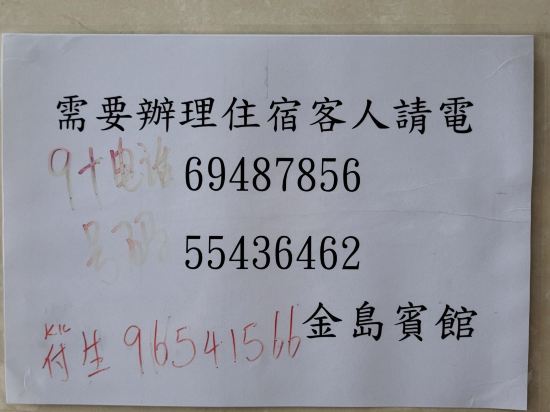 需要辦理住宿客人請電
9十电话 69487856
号码 55436462
金島賓館
KK
付生 96541566